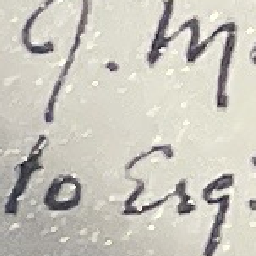 J. M
to Esq: